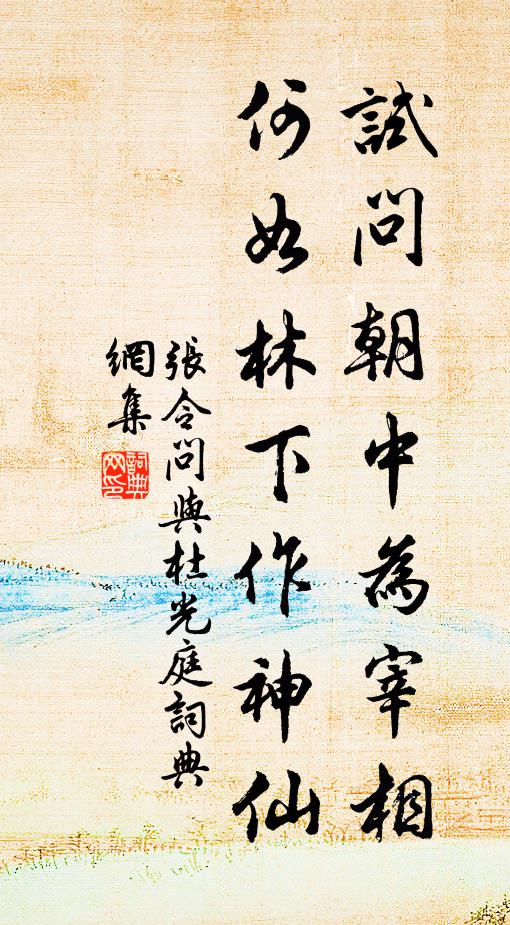 試問朝中為宰相
何如林下作神仙
張令問與杜光庭詞典
網集
詞典
网印